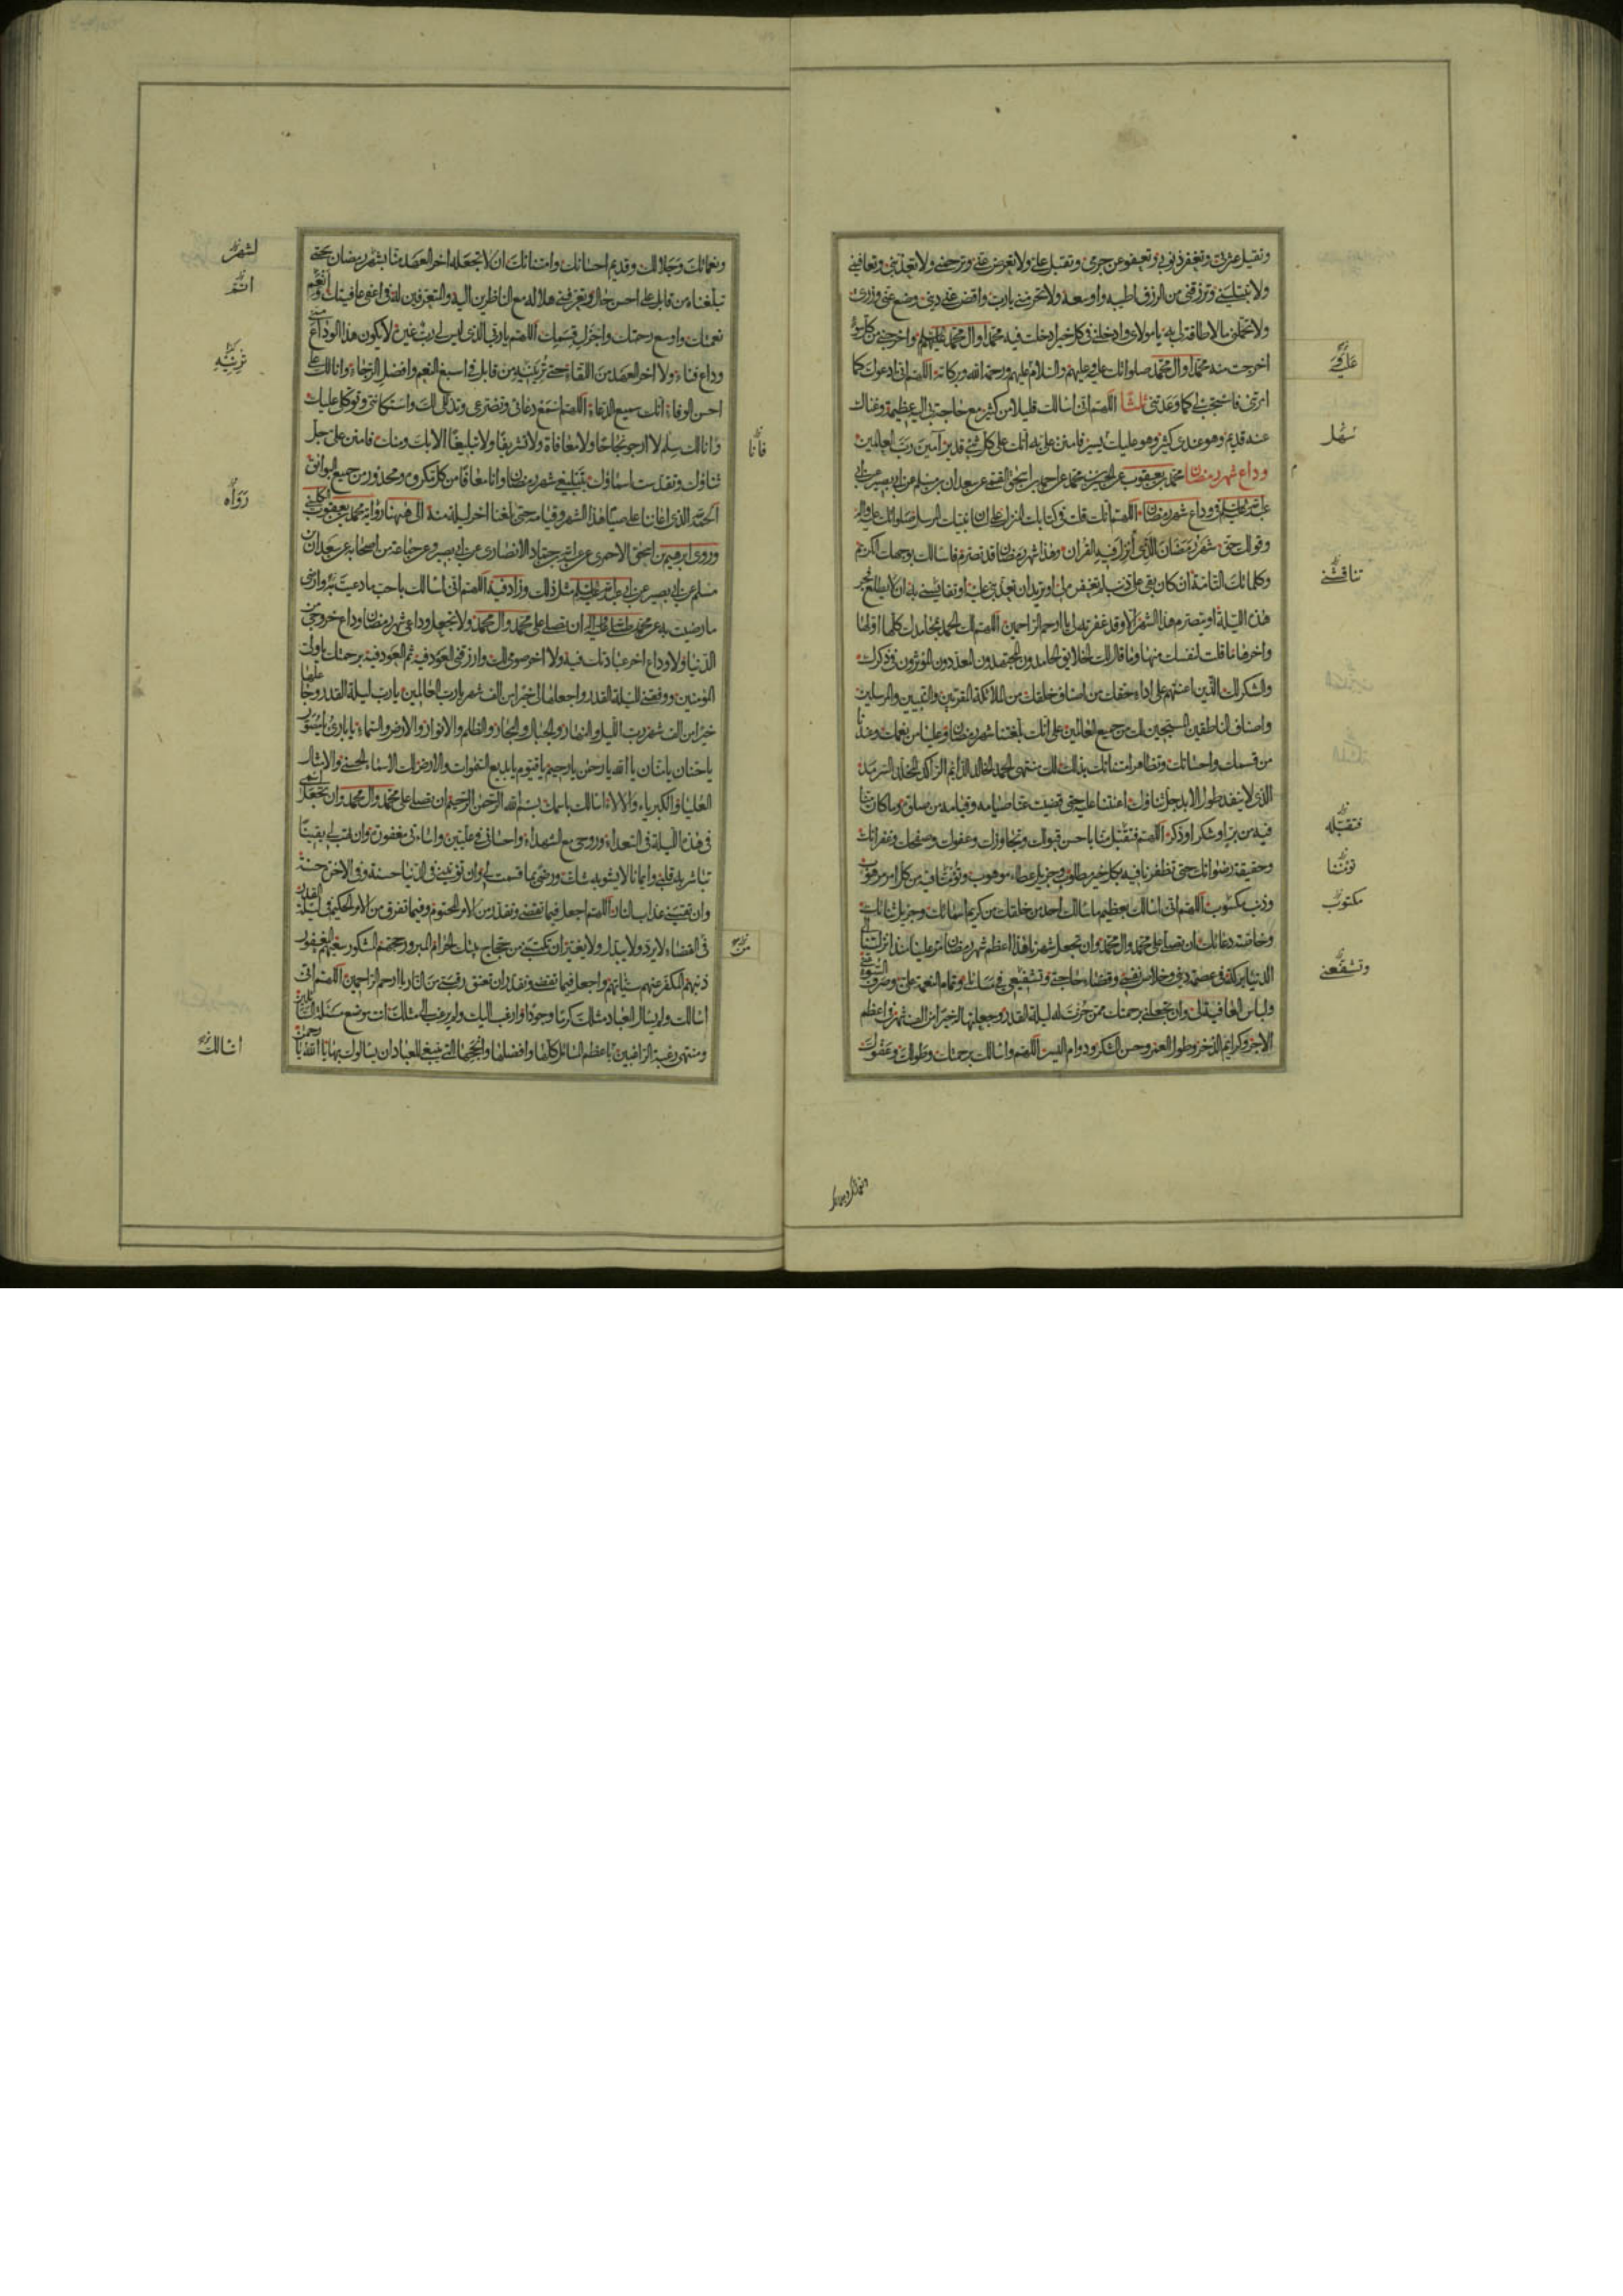 وتقيل عثرتي وتغفر ذنوبي وتعفو عن جرمي وتقبل علي ولا تعرض عني وترحمني ولا تعذبني وتعافيني
ولا تبتليني وترزقني من الرزق اطيبه واوسعه ولا تحرمني يا رب واقض عني ديني وضع عني وزري
ولا تحملني ما لا طاقة لي به يا مولاي وادخلني في كل خير ادخلت فيه محمدا وال محمد واخرجني من كل سوء
اخرجت منه محمدا وال محمد صلواتك عليه وعليهم والسلام عليهم ورحمة الله وبركاته اللهم اني ادعوك كما
امرتني فاستجب لي كما وعدتني ثلثا اللهم اني اسالك قليلا من كثير مع حاجة بي اليه عظيمة وغناك
عنه قديم وهو عندي كثير وهو عليك يسير فامنن علي به انك على كل شيء قدير آمين رب العالمين
وداع شهر رمضان محمد بن يعقوب عن الحسين بن محمد عن احمد بن اسحق القمي عن سعدان بن مسلم عن ابي بصير عن ابي
عبد الله عليه السلم في وداع شهر رمضان اللهم انك قلت في كتابك المنزل على لسان نبيك المرسل صلواتك عليه واله
وقولك حق شهر رمضان الذي انزل فيه القران وهذا شهر رمضان قد تصرم فاسالك بوجهك الكريم
وكلماتك التامة ان كان بقي علي ذنب لم تغفره لي او تريد ان تعذبني عليه او تقايسني به ان لا يطلع فجر
هذه الليلة او يتصرم هذا الشهر الا وقد غفرته لي يا ارحم الراحمين اللهم لك الحمد بمحامدك كلها اولها
واخرها ما قلت لنفسك منها وما قال لك الخلايق الحامدون المجتهدون المعددون الموثرون في ذكرك
والشكر لك الذين اعنتهم على اداء حقك من اصناف خلقك من الملائكة المقربين والنبيين والمرسلين
واصناف الناطقين المسبحين لك من جميع العالمين على انك بلغتنا شهر رمضان وعلينا من نعمك وعندنا
من قسمك واحسانك وتظاهر امتنانك بذلك لك منتهى الحمد الخالد الدايم الراكد المخلد السرمد
الذي لا ينفد طول الابد جل ثناؤك اعنتنا عليه حتى قضيت عنا صيامه وقيامه من صلوة وما كان منا
فيه من بر او شكر او ذكر اللهم فتقبل منا باحسن قبولك وتجاوزك وعفوك وصفحك وغفرانك
وحقيقة رضوانك حتى تظفرنا فيه بكل خير مطلوب وجزيل عطاء موهوب وتؤمننا فيه من كل امر مرهوب
وذنب مكسوب اللهم اني اسالك بعظيم ما سالك احد من خلقك من كريم اسمائك وجزيل ثنائك
وخاصة دعائك ان تصلي على محمد وال محمد وان تجعل شهرنا هذا اعظم شهر رمضان مر علينا منذ انزلتنا الى
الدنيا بركة في عصمة ديني وخلاص نفسي وقضاء حاجتي وتشفيعي في مسائلي وتمام النعمة علي وصرف السوء عني
ولباس العافية لي وان تجعلني برحمتك ممن حزت له ليلة القدر وجعلتها له خيرا من الف شهر في اعظم
الاجر وكرايم الذخر وطول العمر وحسن الشكر ودوام اليسر اللهم واسالك برحمتك وطولك وعفوك
سهل
تناقشني
فتقبله
تؤمننا
مكتوب
وتشفعني
ونعمائك وجلالك وقديم احسانك وامتنانك ان لا تجعله اخر العهد منا بشهر رمضان حتى
تبلغناه من قابل على احسن حال وتعرفني هلاله مع الناظرين اليه والمتعرفين له في اعفى عافيتك وانعم
نعمتك واوسع رحمتك واجزل قسمك اللهم يا ربي الذي ليس لي رب غيره لا يكون هذا الوداع مني
وداع فناء ولا اخر العهد من اللقاء حتى ترينيه من قابل في اسبغ النعم وافضل الرجاء وانا لك على
احسن الوفاء انك سميع الدعاء اللهم اسمع دعائي وتضرعي وتذللي لك واستكانتي وتوكلي عليك
وانا لك سلم لا ارجو نجاحا ولا معافاة ولا تشريفا ولا تبليغا الا بك ومنك فامنن علي جل
ثناؤك وتقدست اسماؤك بتبليغي شهر رمضان وانا معافا من كل مكروه ومحذور من جميع البوائق
الحمد لله الذي اعاننا على صيام هذا الشهر وقيامه حتى بلغنا اخر ليلة منه الى ههنا رواية محمد بن يعقوب الكليني
وروى ابرهيم بن اسحق الاحمري عن عبد الله بن حماد الانصاري عن ابي بصير وعن جماعة من اصحابه عن سعدان بن
مسلم عن ابي بصير عن ابي عبد الله عليه السلم مثل ذلك وزاد فيه اللهم اني اسالك باحب ما دعيت به وارضى
ما رضيت به عن محمد صلى الله عليه واله ان تصلي على محمد وال محمد ولا تجعل وداعي شهر رمضان وداع خروجي من
الدنيا ولا وداع اخر عبادتك فيه ولا اخر صومي لك وارزقني العود فيه ثم العود فيه برحمتك يا ولي
المؤمنين ووفقني لليلة القدر واجعلها لي خيرا من الف شهر يا رب العالمين يا رب ليلة القدر وجاعلها
خيرا من الف شهر رب الليل والنهار والجبال والبحار والظلم والانوار والارض والسماء يا بارئ يا مصور
يا حنان يا منان يا الله يا رحمن يا رحيم يا قيوم يا بديع السموات والارض لك الاسماء الحسنى والامثال
العليا والكبرياء والالاء اسالك باسمك بسم الله الرحمن الرحيم ان تصلي على محمد وال محمد وان تجعل اسمي
في هذه الليلة في السعداء وروحي مع الشهداء واحساني في عليين واساءتي مغفورة وان تهب لي يقينا
تباشر به قلبي وايمانا لا يشوبه شك ورضى بما قسمت لي وان تؤتيني في الدنيا حسنة وفي الاخرة حسنة
وان تقيني عذاب النار اللهم اجعل فيما تقضي وتقدر من الامر المحتوم وفيما تفرق من الامر الحكيم في ليلة القدر
في القضاء الذي لا يرد ولا يبدل ولا يغير ان تكتبني من حجاج بيتك الحرام المبرور حجهم المشكور سعيهم المغفور
ذنبهم المكفر عنهم سيئاتهم واجعل فيما تقضي وتقدر ان تعتق رقبتي من النار يا ارحم الراحمين اللهم اني
اسالك ولم يسال العباد مثلك كرما وجودا وارغب اليك ولم يرغب الى مثلك انت موضع مسئلة السائلين
ومنتهى رغبة الراغبين باعظم المسائل كلها وافضلها وانجحها التي ينبغي للعباد ان يسالوك بها يا الله يا رحمن
لشهر
رواه
فانا
من
اسالك